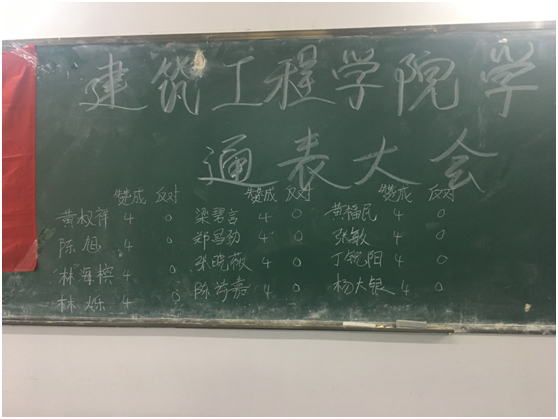 建筑工程学院学
通表大会
赞成 反对 赞成 反对 赞成 反对
黄权祥 4 0 梁碧言 4 0 黄福民 4 0
陈旭 4 0 郑马劲 4 0 张敏 4 0
林海槟 4 0 张晓薇 4 0 丁锐阳 4 0
林烁 4 0 陈芳嘉 4 0 杨大银 4 0